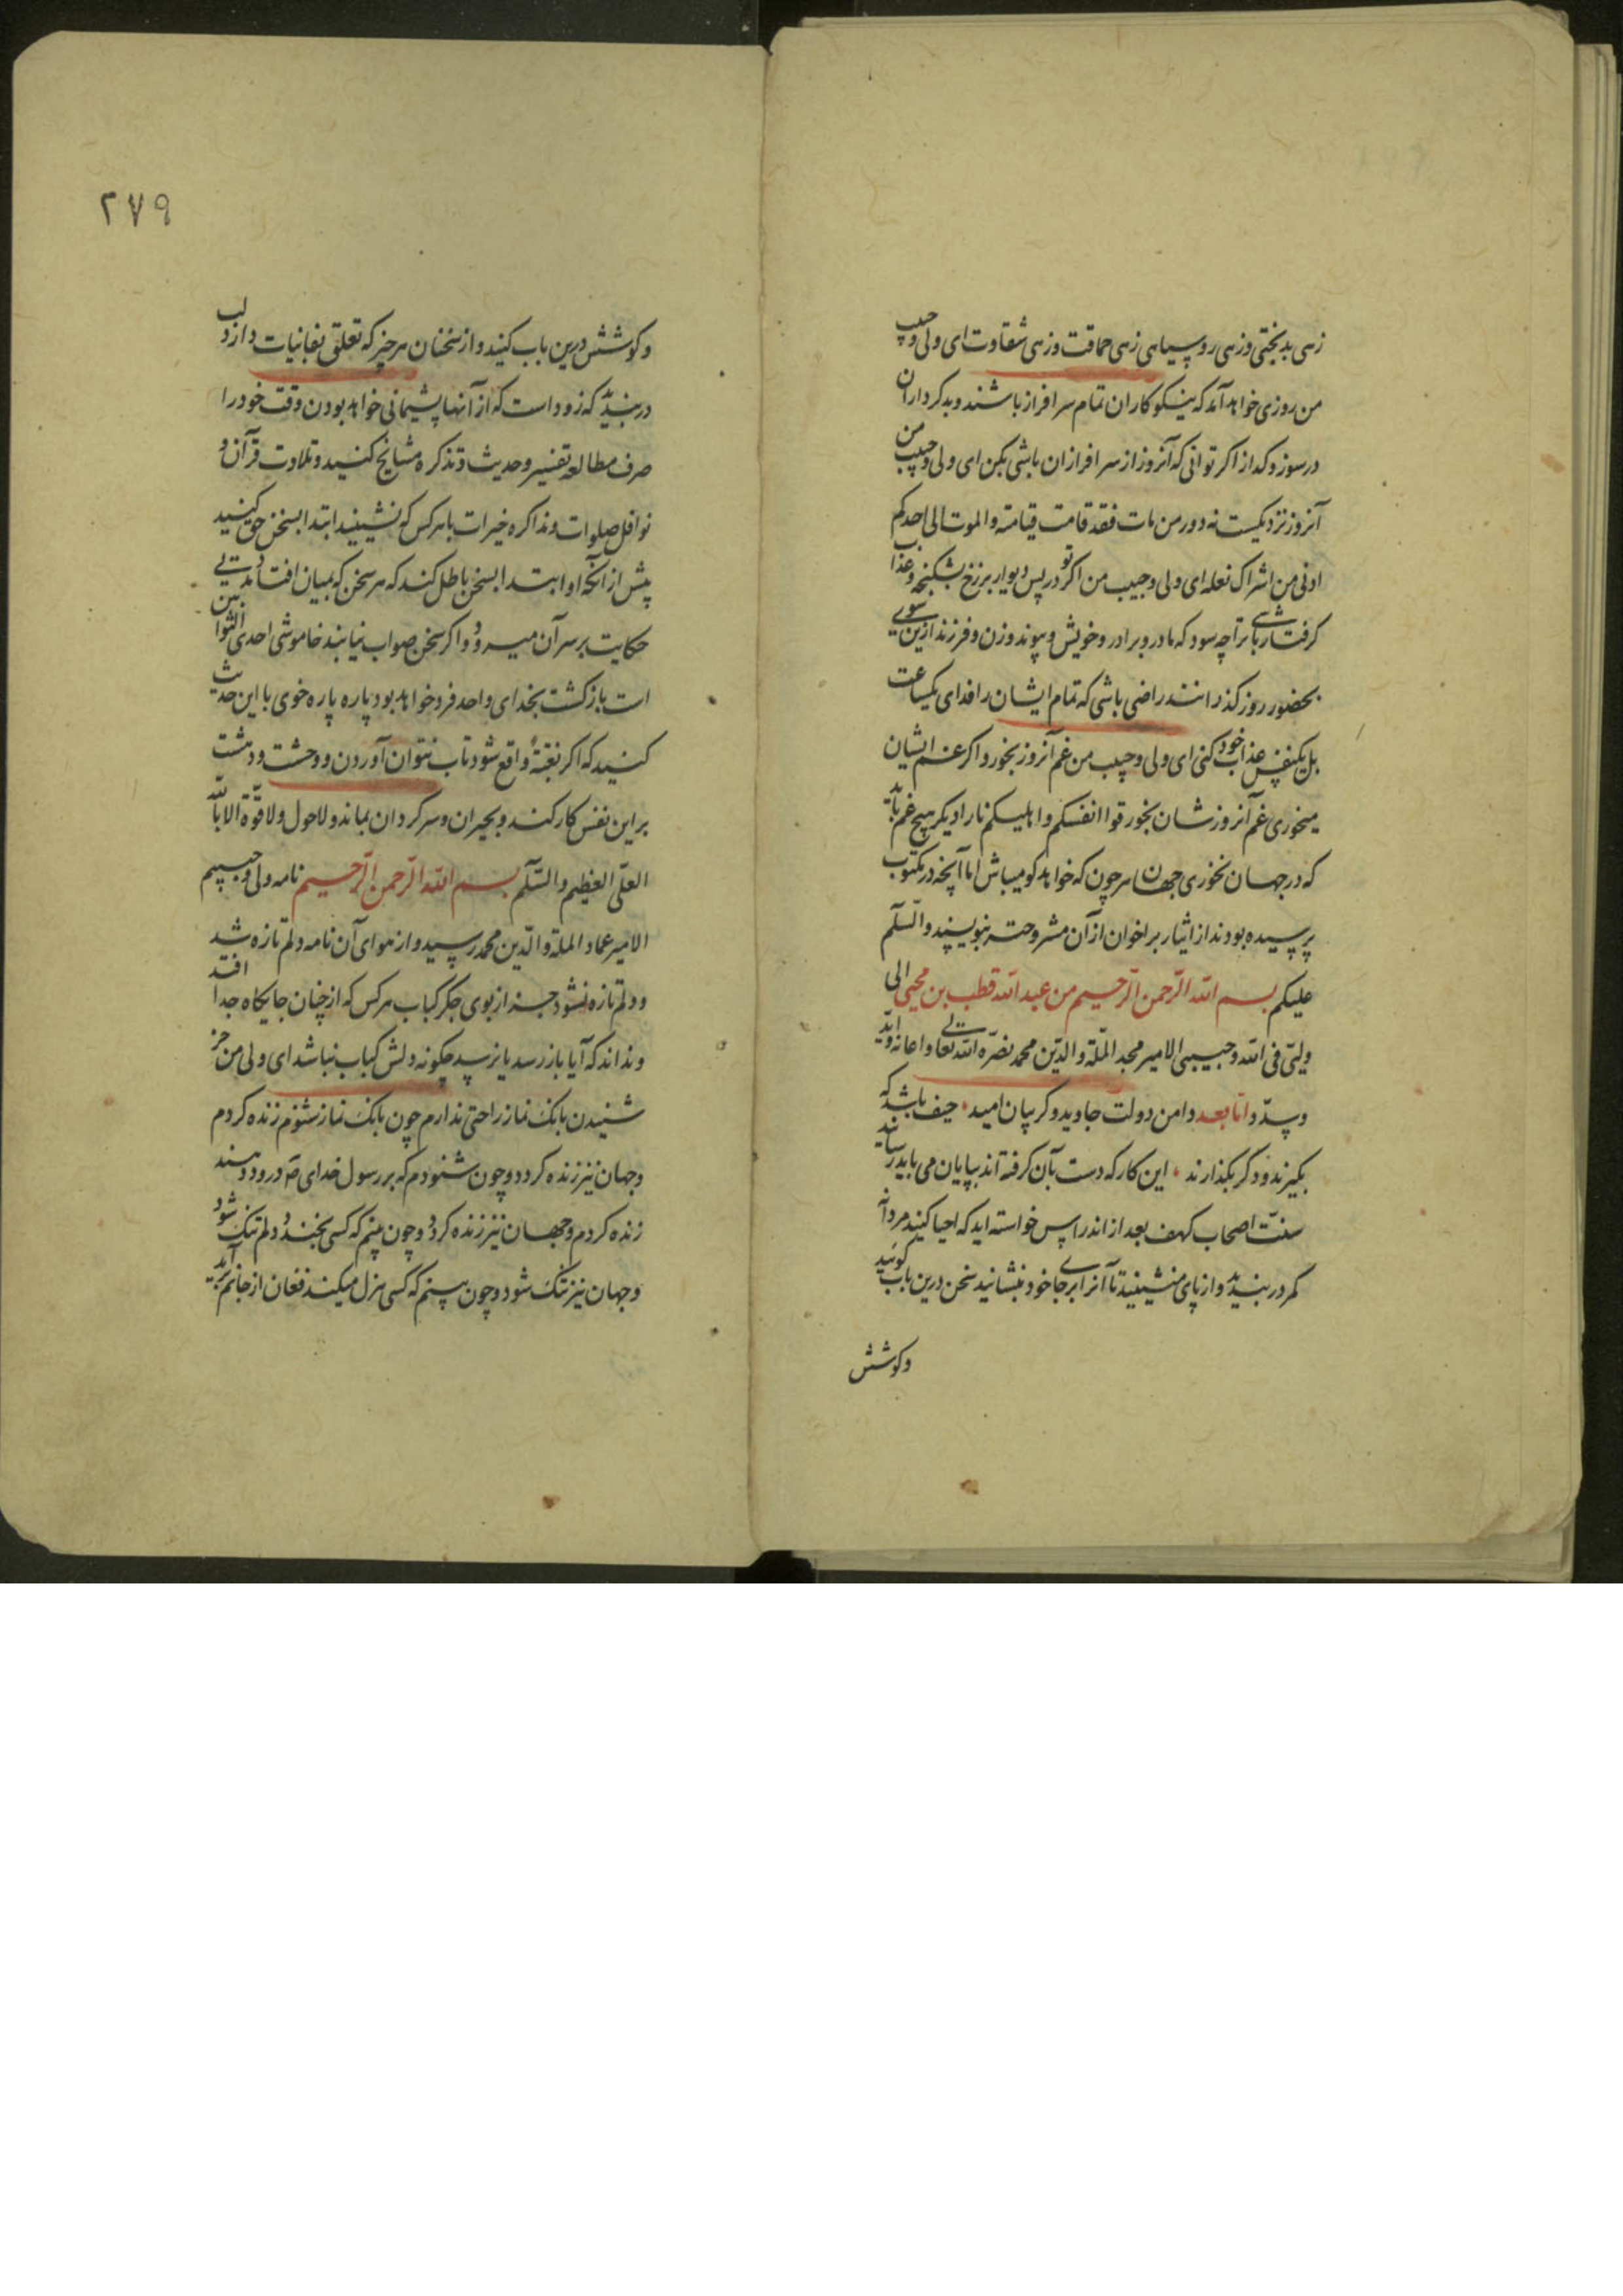 زهی بدبختی وزهی روسیاهی زهی حماقت وزهی شقاوت ای ولی وحبیب
من روزی خواهد آمد که نیکوکاران تمام سرافراز باشند وبدکرداران
درسوز وکداز اکر توانی که آنروز از سرافرازان باشی بکن ای ولی وحبیب من
آنروز نزدیکست نه دور من مات فقد قامت قیامته والموت الی احدکم
ادنی من اشراک نعله ای ولی وحبیب من اکر تو در پس دیوار برزخ بشکنجه وعذاب
کرفتار باشی ترا چه سود که مادر وبرادر وخویش وپیوند وزن وفرزند ازین سوی
بحضور روز کذرانند راضی باشی که تمام ایشان را فدای یکساعت
بل یکنفس عذاب خود کنی ای ولی وحبیب من غم آنروز بخور واکر غم ایشان
میخوری غم آنروز شان بخور قوا انفسکم واهلیکم نارا دیکر هیچ غم باید
که در جهان نخوری جهان هرچون که خواهد کو میباش اما آنچه در مکتوب
پرسیده بودند از ایثار بر اخوان از آن مشروحتر بنویسند والسّلم
علیکم بسم الله الرّحمن الرّحیم من عبد الله قطب بن محیی الی
ولیّی فی الله وحبیبی الامیر مجد الملّة والدّین محمد نصّره الله تعالی واعانه وایّد
وسدّد امّا بعد دامن دولت جاوید وکریبان امید حیف باشد که
بکیرند ودکر بکذارند این کار که دست بآن کرفته اند بپایان می باید رسانید
سنّت اصحاب کهف بعد از اندراس خواسته اید که احیا کنید مردانه
کمر در بندید واز پای منشینید تا آنرا برجای خود بنشانید سخن درین باب کوئید
وکوشش
۲۷۹
وکوشش درین باب کنید واز سخنان هر چیز که تعلق بفانیات دارد لب
در بندید که زود است که از آنها پشیمانی خواهد بودن وقت خود را
صرف مطالعه تفسیر وحدیث وتذکره مشایخ کنید وتلاوت قرآن و
نوافل صلوات ومذاکره خیرات با هرکس که نشینید ابتدا بسخن حق کنید
پیش از آنکه او ابتدا بسخن باطل کند که هر سخن که بمیان افتاد مدتی
حکایت بر سر آن میرود واکر سخن صواب نیابند خاموشی احدی الثوابین
است بازکشت بخدای واحد فرد خواهد بود پاره پاره خوی با این حدیث
کنید که اکر بغتةً واقع شود تاب نتوان آوردن ووحشت ودهشت
بر این نفس کار کند وبحیران وسرکردان بماند ولاحول ولا قوّة الا بالله
العلیّ العظیم والسّلم بسم الله الرّحمن الرّحیم نامه ولی وحبیبم
الامیر عماد الملة والدّین محمد رسید واز هوای آن نامه دلم تازه شد
ودلم تازه نشود جز از بوی جکر کباب هرکس که از چنان جایکاه جدا افتد
ونداند که آیا باز رسد یا نرسد چکونه دلش کباب نباشد ای ولی من جز
شنیدن بانک نماز راحتی ندارم چون بانک نماز شنوم زنده کردم
وجهان نیز زنده کردد وچون شنودم که بر رسول خدای ص درود دهند
زنده کردم وجهان نیز زنده کردد وچون بینم که کسی بخندد دلم تنک شود
وجهان نیز تنک شود وچون بینم که کسی هزل میکند فغان از جانم برآید